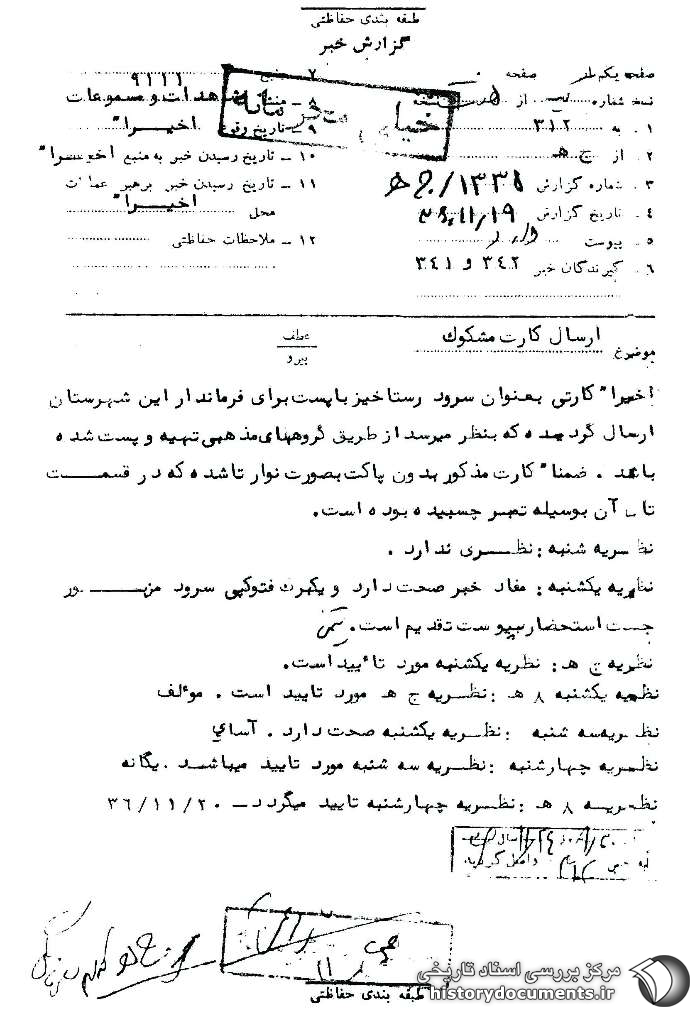 طبقه بندی حفاظتی
گزارش خبر
صفحه یکم از صفحه
نسخه شماره از نسخه
۱ . به ۳۱۲
۲ . از ج هـ
۳ . شماره گزارش
۴ . تاریخ گزارش
۵ . پیوست
۶ . گیرندگان خبر ۳۴۲ و ۳۴۱
۷ ۹۱۱۱
۸ ـ
۹ ـ تاریخ وقوع اخیرا"
۱۰ ـ تاریخ رسیدن خبر به منبع اخیرا"
۱۱ ـ تاریخ رسیدن خبر برهبر عملیات
محل اخیرا"
۱۲ ـ ملاحظات حفاظتی
موضوع ارسال کارت مشکوک
عطف
پیرو
اخیرا" کارتی بعنوان سرود رستاخیز با پست برای فرماندار این شهرستان
ارسال گردیده که بنظر میرسد از طریق گروههای مذهبی تهیه و پست شده
باشد . ضمنا" کارت مذکور بدون پاکت بصورت نوار تا شده که در قسمت
تای آن بوسیله تمبر چسبیده بوده است.
نظریه شنبه : نظری ندارد .
نظریه یکشنبه : مفاد خبر صحت دارد و یکبرگ فتوکپی سرود مزبور
جهت استحضار بپیوست تقدیم است.
نظریه ج هـ : نظریه یکشنبه مورد تائید است.
نظریه یکشنبه ۸ هـ : نظریه ج هـ مورد تایید است . مؤلف
نظریه سه شنبه : نظریه یکشنبه صحت دارد . آسای
نظریه چهارشنبه : نظریه سه شنبه مورد تایید میباشد . یگانه
نظریه ۸ هـ : نظریه چهارشنبه تایید میگردد ـ ۳۶/۱۱/۲۰
طبقه بندی حفاظتی
مرکز بررسی اسناد تاریخی
historydocuments.ir